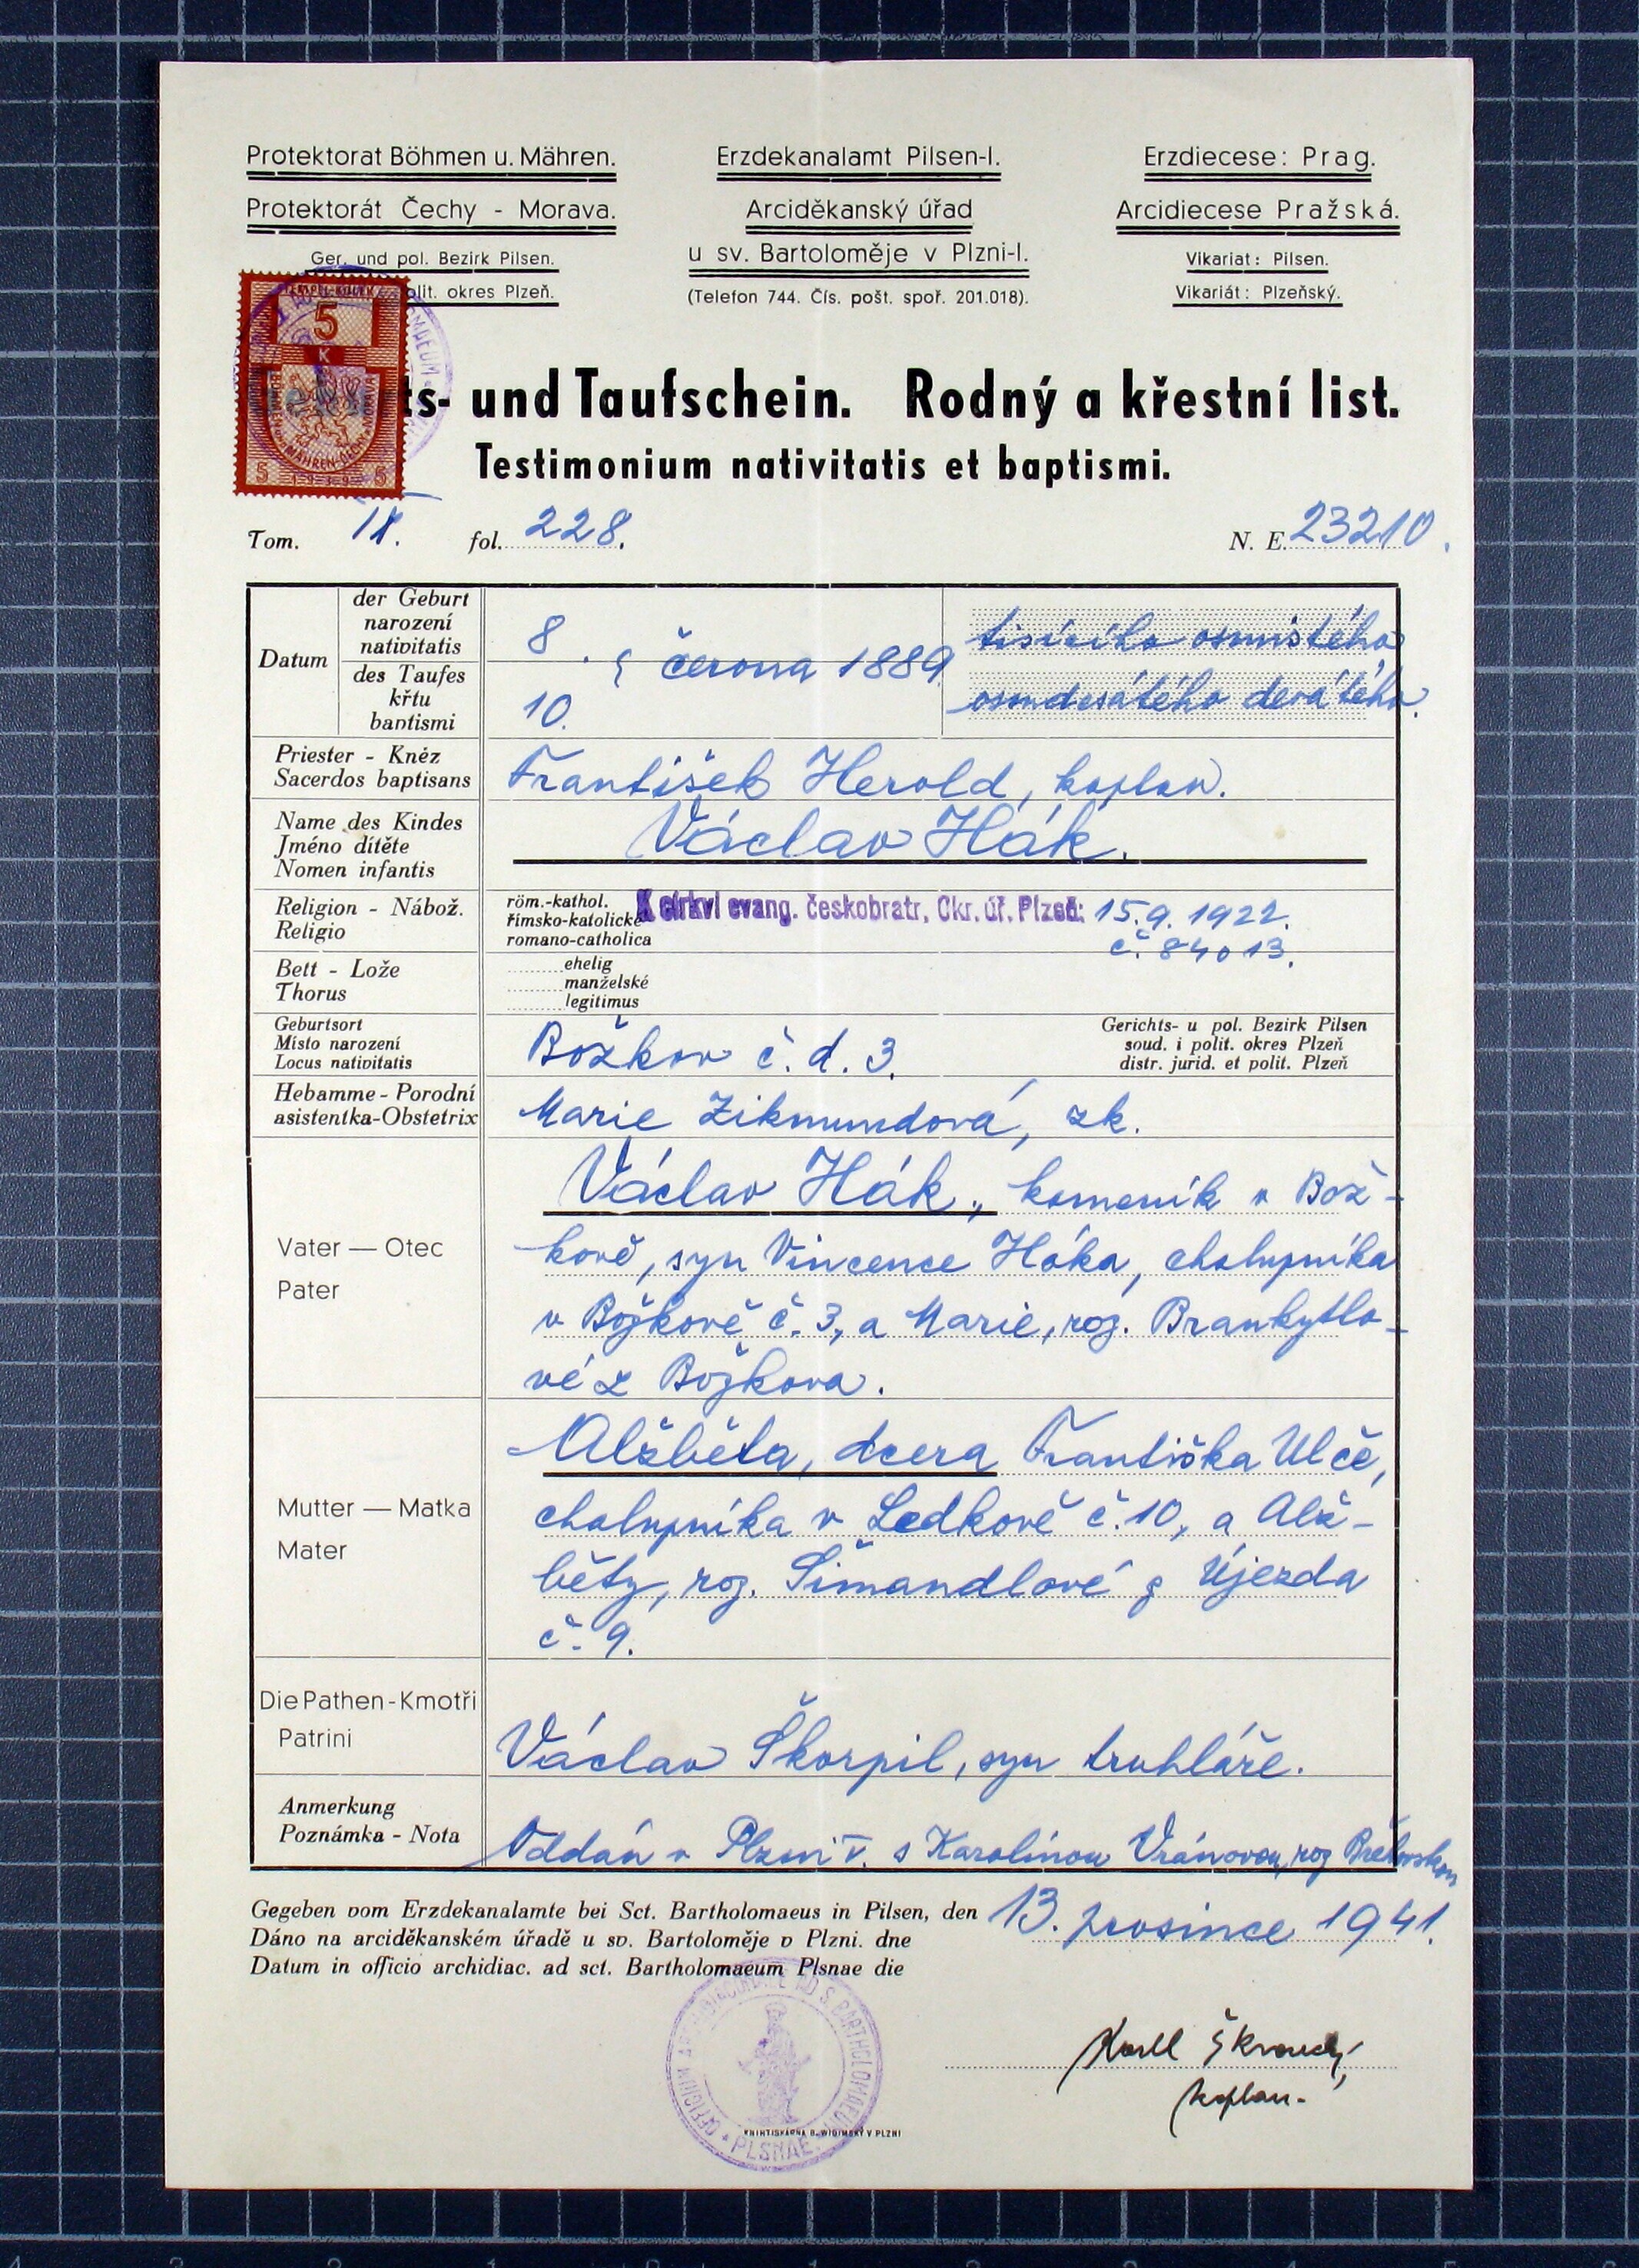 Protektorat Böhmen u. Mähren.
Protektorát Čechy - Morava.
Ger. und pol. Bezirk Pilsen.
lit. okres Plzeň.
Erzdekanalamt Pilsen-I.
Arciděkanský úřad
u sv. Bartoloměje v Plzni-I.
(Telefon 744. Čís. pošt. spoř. 201.018).
Erzdiecese: Prag.
Arcidiecese Pražská.
Vikariat: Pilsen.
Vikariát: Plzeňský.
5
K
5 1939 5
ts- und Taufschein. Rodný a křestní list.
Testimonium nativitatis et baptismi.
Tom. fol. 228. N. E. 23210.
Datum
der Geburt
narození
nativitatis
des Taufes
křtu
baptismi
8.
10.
června 1889
tisícího osmistého
osmdesátého devátého.
Priester - Kněz
Sacerdos baptisans
František Herold, kaplan.
Name des Kindes
Jméno dítěte
Nomen infantis
Václav Hák.
Religion - Nábož.
Religio
röm.-kathol.
římsko-katolické
romano-catholica
K církvi evang. českobratr. Okr. úř. Plzeň: 15.9. 1922.
č. 84013.
Bett - Lože
Thorus
ehelig
manželské
legitimus
Geburtsort
Místo narození
Locus nativitatis
Božkov č. d. 3.
Gerichts- u pol. Bezirk Pilsen
soud. i polit. okres Plzeň
distr. jurid. et polit. Plzeň
Hebamme - Porodní
asistentka-Obstetrix
Marie Zikmundová, zk.
Vater — Otec
Pater
Václav Hák, kameník v Bož-
kově, syn Vincence Háka, chalupníka
v Božkově č. 3, a Marie, roz. Brankytlo-
vé z Božkova.
Mutter — Matka
Mater
Alžběta, dcera Františka Ulče,
chalupníka v Ledkově č. 10, a Alž-
běty, roz. Šimandlové z Újezda
č. 9.
Die Pathen - Kmotři
Patrini
Václav Škorpil, syn truhláře.
Anmerkung
Poznámka - Nota
Oddán v Plzni V. s Karolínou Vránovou, roz
Gegeben vom Erzdekanalamte bei Sct. Bartholomaeus in Pilsen, den
Dáno na arciděkanském úřadě u sv. Bartoloměje v Plzni. dne
Datum in officio archidiac. ad sct. Bartholomaeum Plsnae die
13. prosince 1941.
OFFICIUM ARCHIDIACONALE AD S. BARTHOLOMAEUM PLSNAE.
Karel
kaplan.
KNIHTISKÁRNA B. WIDIMSKÝ V PLZNI